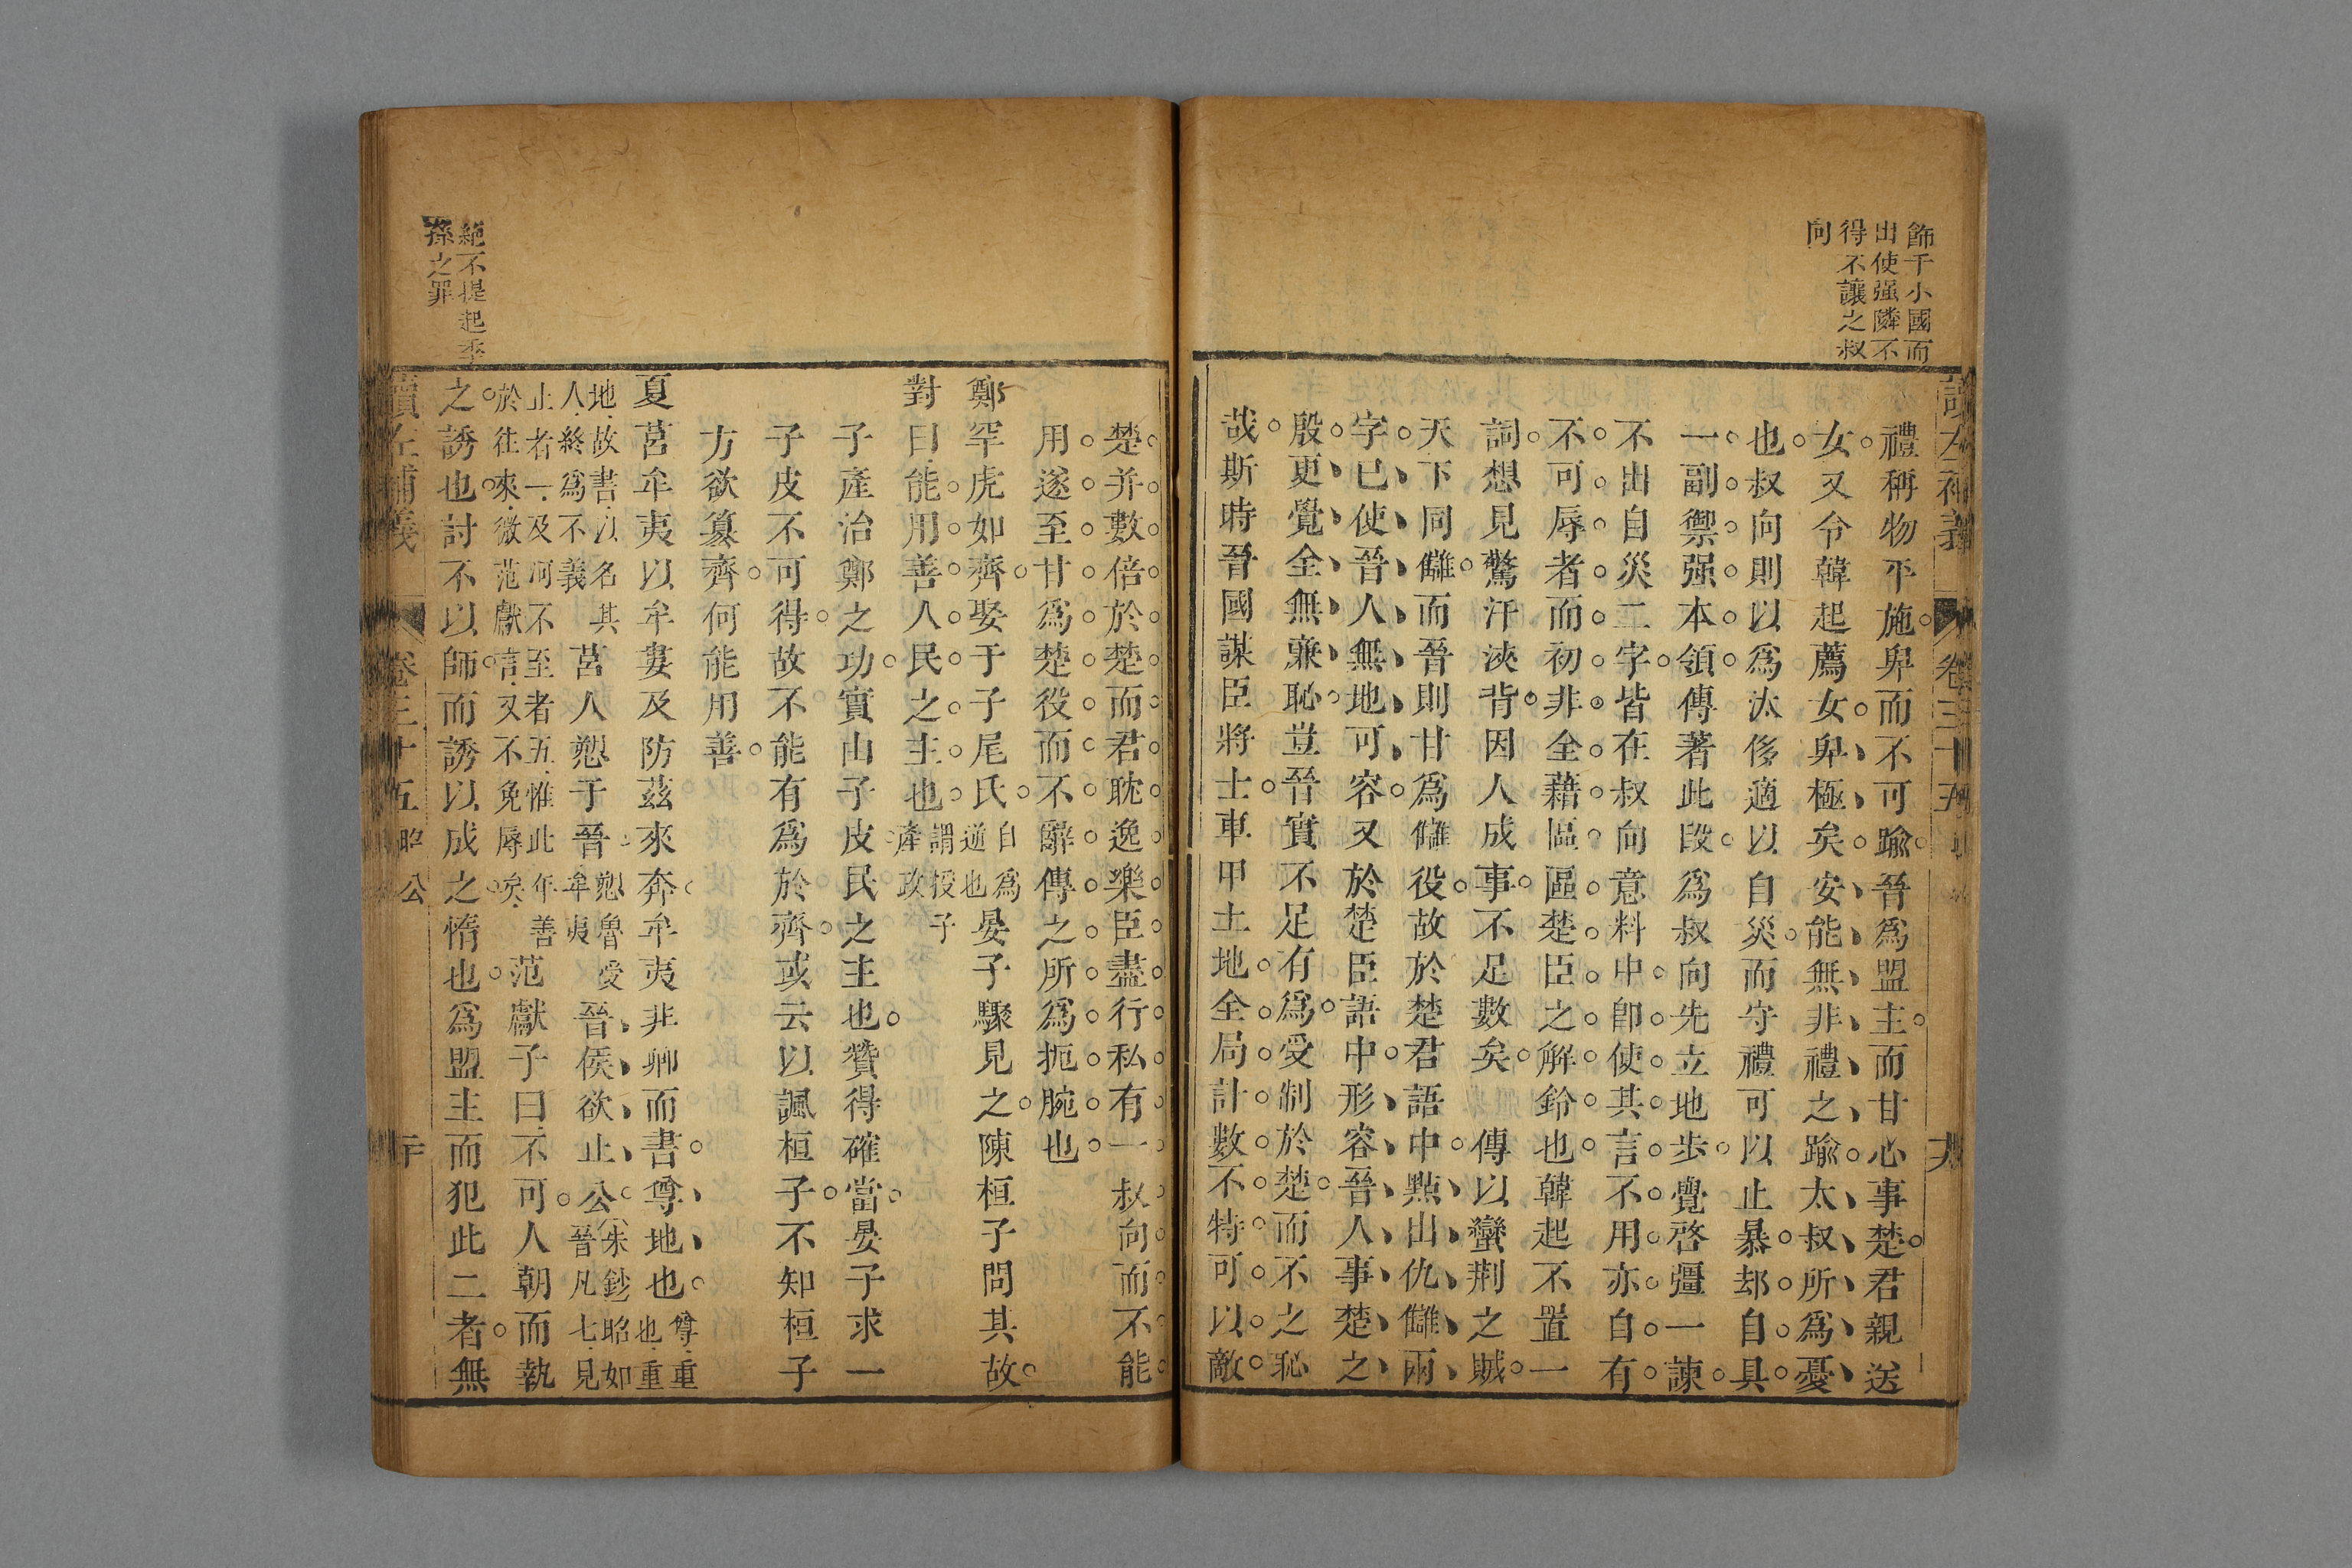 飾于小國而
出使强隣不
得不讓之叔
向
讀左補義
卷三十五
禮稱物平施卑而不可踰晉爲盟主而甘心事楚君親送
女又令韓起薦女卑極矣安能無非禮之踰太叔所爲憂
也叔向則以爲汰侈適以自災而守禮可以止暴却自具
一副禦强本領傳著此段爲叔向先立地步覺啓彊一諫
不出自災二字皆在叔向意料中卽使其言不用亦自有
不可辱者而初非全藉區區楚臣之解鈴也韓起不置一
詞想見驚汗浹背因人成事不足數矣　傳以蠻荆之賊
天下同讎而晉則甘爲讎役故於楚君語中點出仇讎兩
字已使晉人無地可容又於楚臣語中形容晉人事楚之
殷更覺全無亷恥豈晉實不足有爲受制於楚而不之恥
哉斯時晉國謀臣將士車甲土地全局計數不特可以敵
楚并數倍於楚而君耽逸樂臣盡行私有一叔向而不能
用遂至甘爲楚役而不辭傳之所爲扼腕也
鄭罕虎如齊娶于子尾氏自爲逆也晏子驟見之陳桓子問其故
對曰能用善人民之主也謂授子產政
子產治鄭之功實由子皮民之主也贊得確當晏子求一
子皮不可得故不能有爲於齊或云以諷桓子不知桓子
方欲篡齊何能用善
夏莒牟夷以牟婁及防茲來奔牟夷非卿而書尊地也尊重也重
地故書以名其人終爲不義莒人愬于晉愬魯受牟夷晉侯欲止公朱鈔昭如晉凡七見
止者一及河不至者五惟此年善於往來微范獻言又不免辱矣范獻子曰不可人朝而執
之誘也討不以師而誘以成之惰也爲盟主而犯此二者無
絕不提起季
孫之罪
讀左補義
卷三十五
昭公
二十